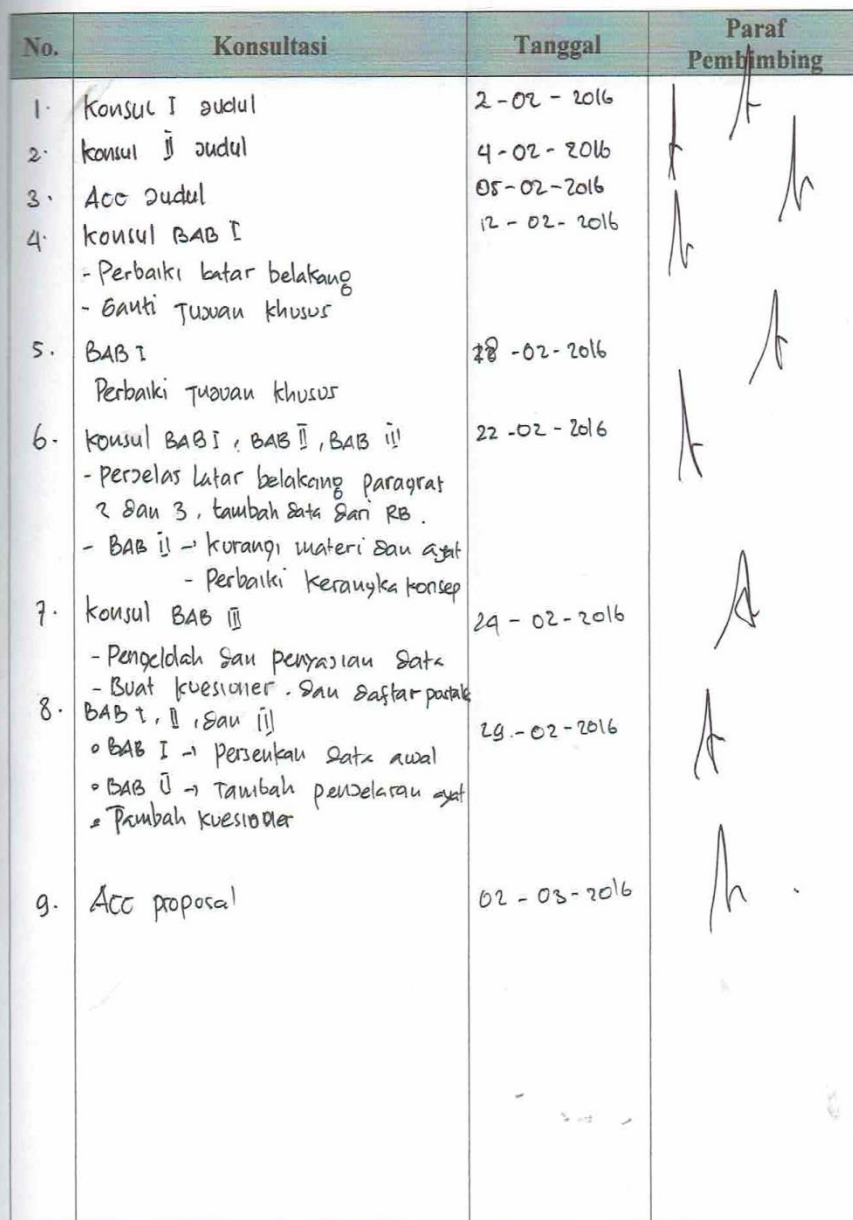 No. Konsultasi Tanggal Paraf Pembimbing
1. Konsul I Judul 2-02-2016
2. Konsul II Judul 4-02-2016
3. Acc Judul 05-02-2016
4. Konsul BAB I 12-02-2016
- Perbaiki Latar belakang
- Ganti Tujuan khusus
5. BAB I 18-02-2016
Perbaiki Tujuan khusus
6. Konsul BAB I, BAB II, BAB III 22-02-2016
- Perjelas Latar belakang paragraf
2 dan 3, tambah data dari RB.
- BAB II → kurangi materi dan ayat
- Perbaiki kerangka konsep
7. Konsul BAB III 24-02-2016
- Pengeldah dan penyajian data
- Buat kuesioner. dan daftar pustak
8. BAB I, II, dan III 29-02-2016
• BAB I → Persenkan data awal
• BAB II → Tambah penjelasan ayat
• Tambah kuesioner
9. Acc proposal 02-03-2016